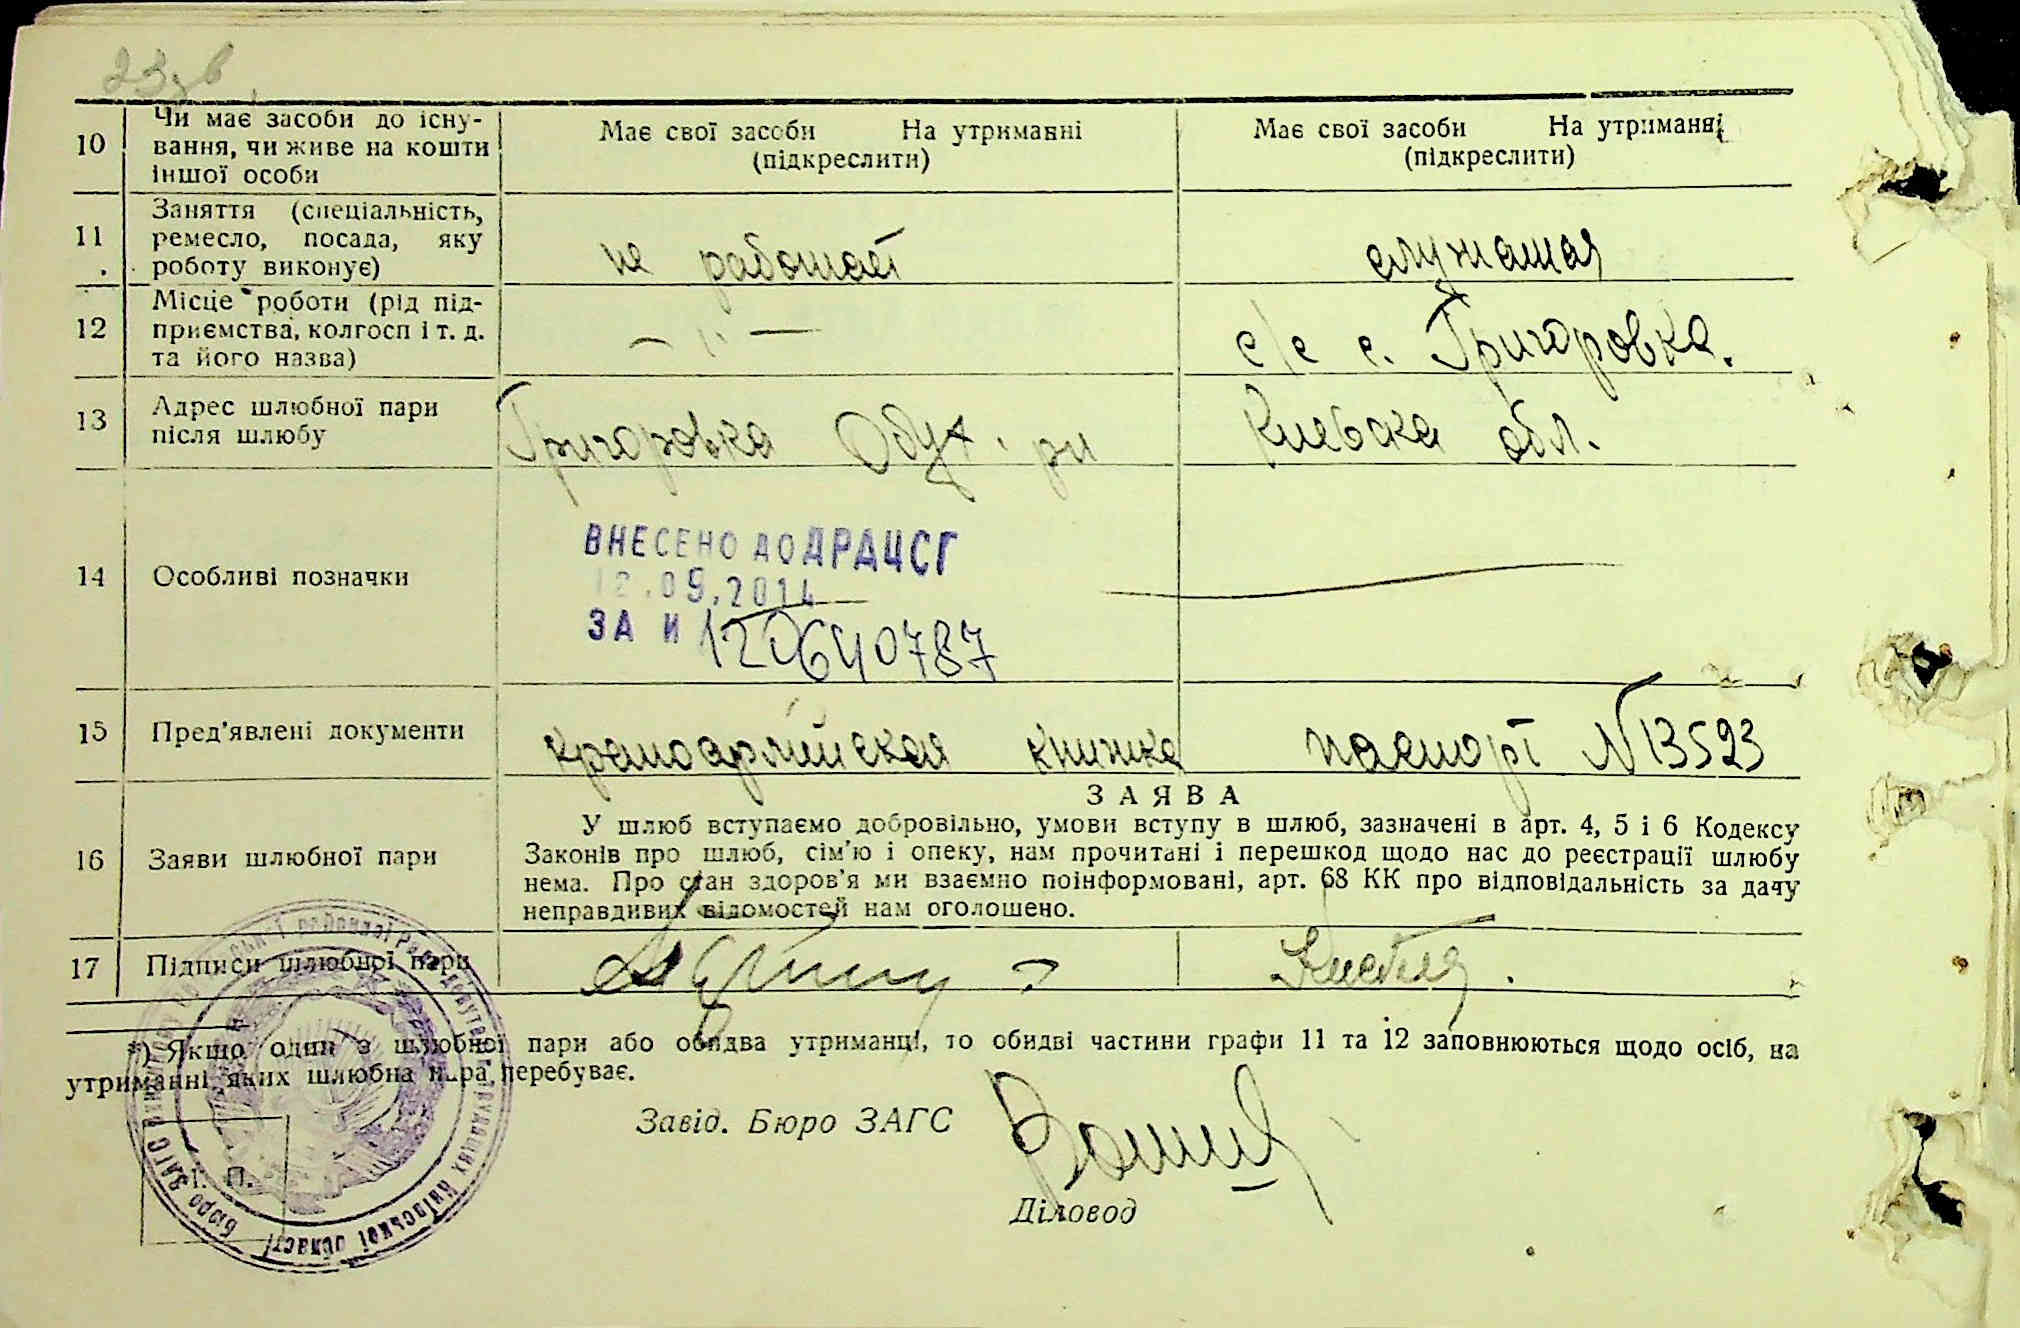 23зв
10
Чи має засоби до існу-
вання, чи живе на кошти
іншої особи
Має свої засоби На утриманні
(підкреслити)
Має свої засоби На утриманні
(підкреслити)
11
Заняття (спеціальність,
ремесло, посада, яку
роботу виконує)
не работает
служащая
12
Місце роботи (рід під-
приємства, колгосп і т. д.
та його назва)
— " —
с/с с. Григоровка.
13
Адрес шлюбної пари
після шлюбу
Григоровка Обух. рн
Киевска обл.
14
Особливі позначки
ВНЕСЕНО ДО ДРАЦСГ
12.09.2014
ЗА № 120640787
15
Пред'явлені документи
красноармейская книжка
паспорт N 13523
16
Заяви шлюбної пари
ЗАЯВА
У шлюб вступаємо добровільно, умови вступу в шлюб, зазначені в арт. 4, 5 і 6 Кодексу
Законів про шлюб, сім'ю і опеку, нам прочитані і перешкод щодо нас до реєстрації шлюбу
нема. Про стан здоров'я ми взаємно поінформовані, арт. 68 КК про відповідальність за дачу
неправдивих відомостей нам оголошено.
17
Підписи шлюбної пари
*) Якщо один з шлюбної пари або обидва утриманці, то обидві частини графи 11 та 12 заповнюються щодо осіб, на
утриманні яких шлюбна пара перебуває.
Завід. Бюро ЗАГС
Діловод
М. П.
Бюро ЗАГС районної Ради депутатів трудящих Київської області